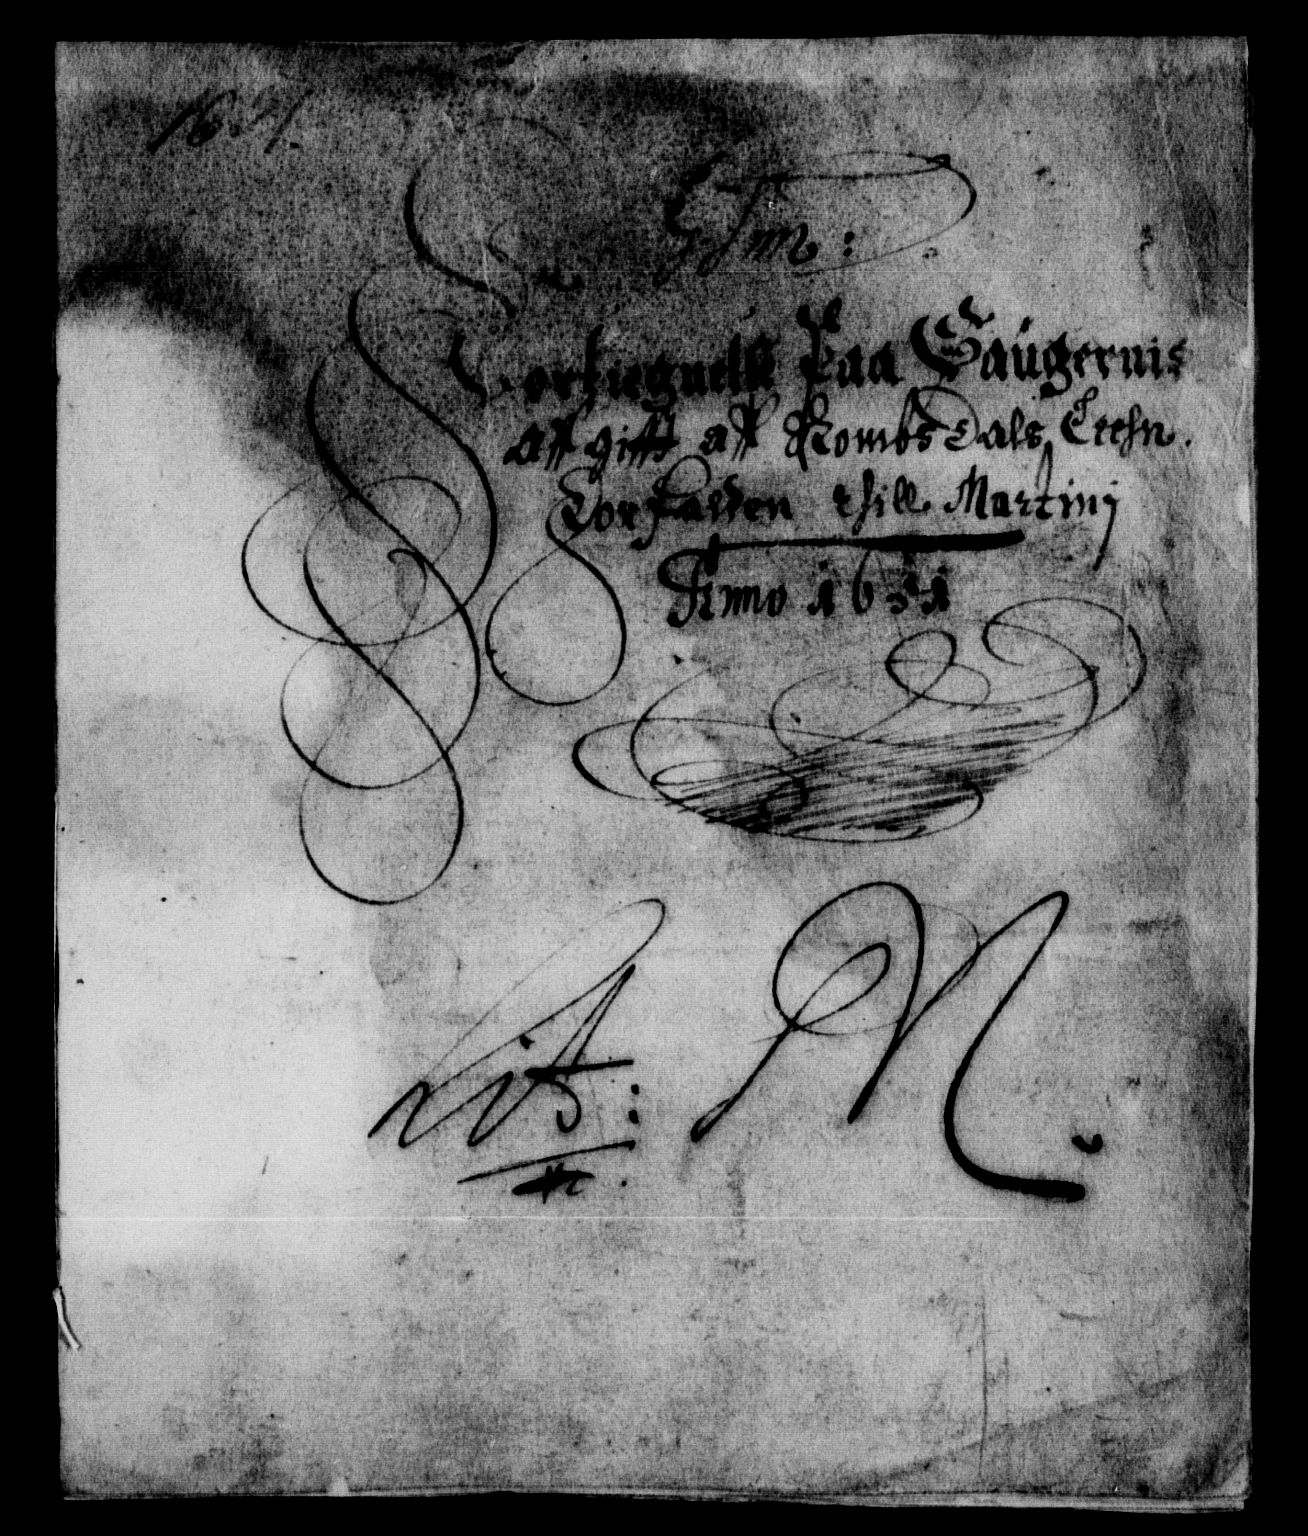 1631.
Fortzegnelse Paa Saugernis
affgifft aff Rombsdals Leehn.
Vorfalden thill Martinj
Anno 1631
Lit: M.